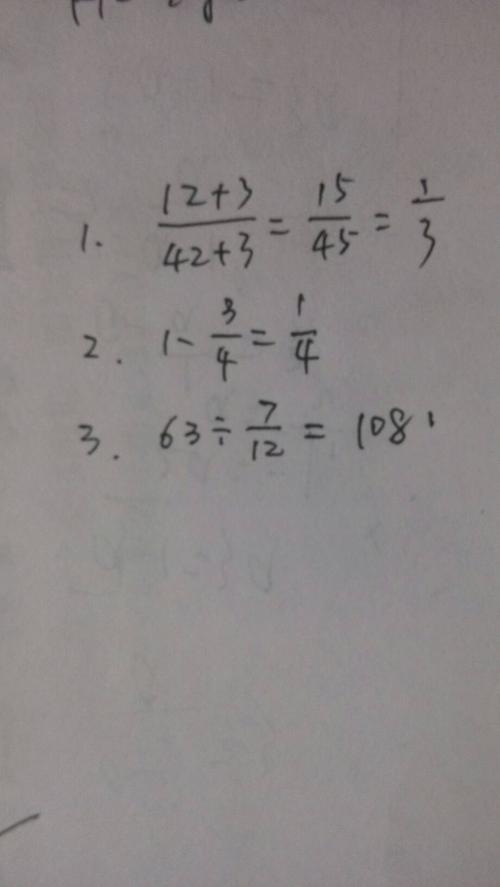 1. (12+3)/(42+3) = 15/45 = 1/3
2. 1 - 3/4 = 1/4
3. 63 ÷ 7/12 = 108